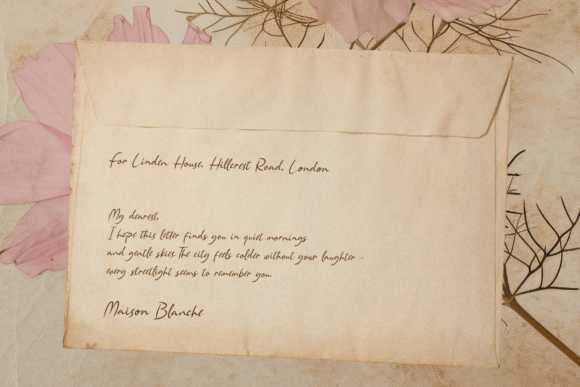 For Linden House, Hillcrest Road, London
My dearest,
I hope this letter finds you in quiet mornings
and gentle skies. The city feels colder without your laughter -
every streetlight seems to remember you.
Maison Blanche